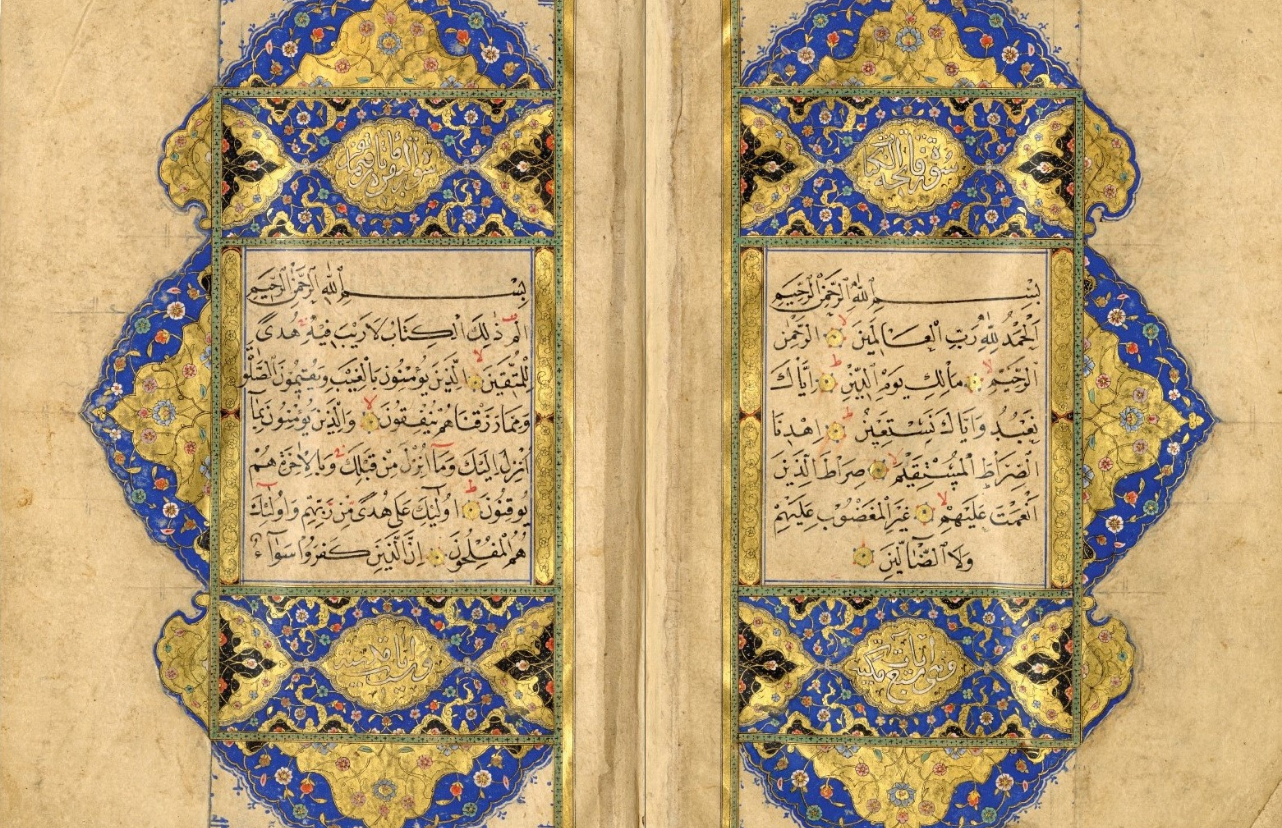 سورة فاتحة الكتاب
بسم الله الرحمن الرحيم
الحمد لله رب العالمين الرحمن
الرحيم مالك يوم الدين اياك
نعبد واياك نستعين اهدنا
الصراط المستقيم صراط الذين
انعمت عليهم غير المغضوب عليهم
ولا الضالين
سبع آيات مكية
سورة البقرة
بسم الله الرحمن الرحيم
الم ذلك الكتاب لا ريب فيه هدى
للمتقين الذين يؤمنون بالغيب ويقيمون الصلوة
ومما رزقناهم ينفقون والذين يؤمنون بما
انزل اليك وما انزل من قبلك وبالاخرة هم
يوقنون اولئك على هدى من ربهم واولئك
هم المفلحون ان الذين كفروا سواء